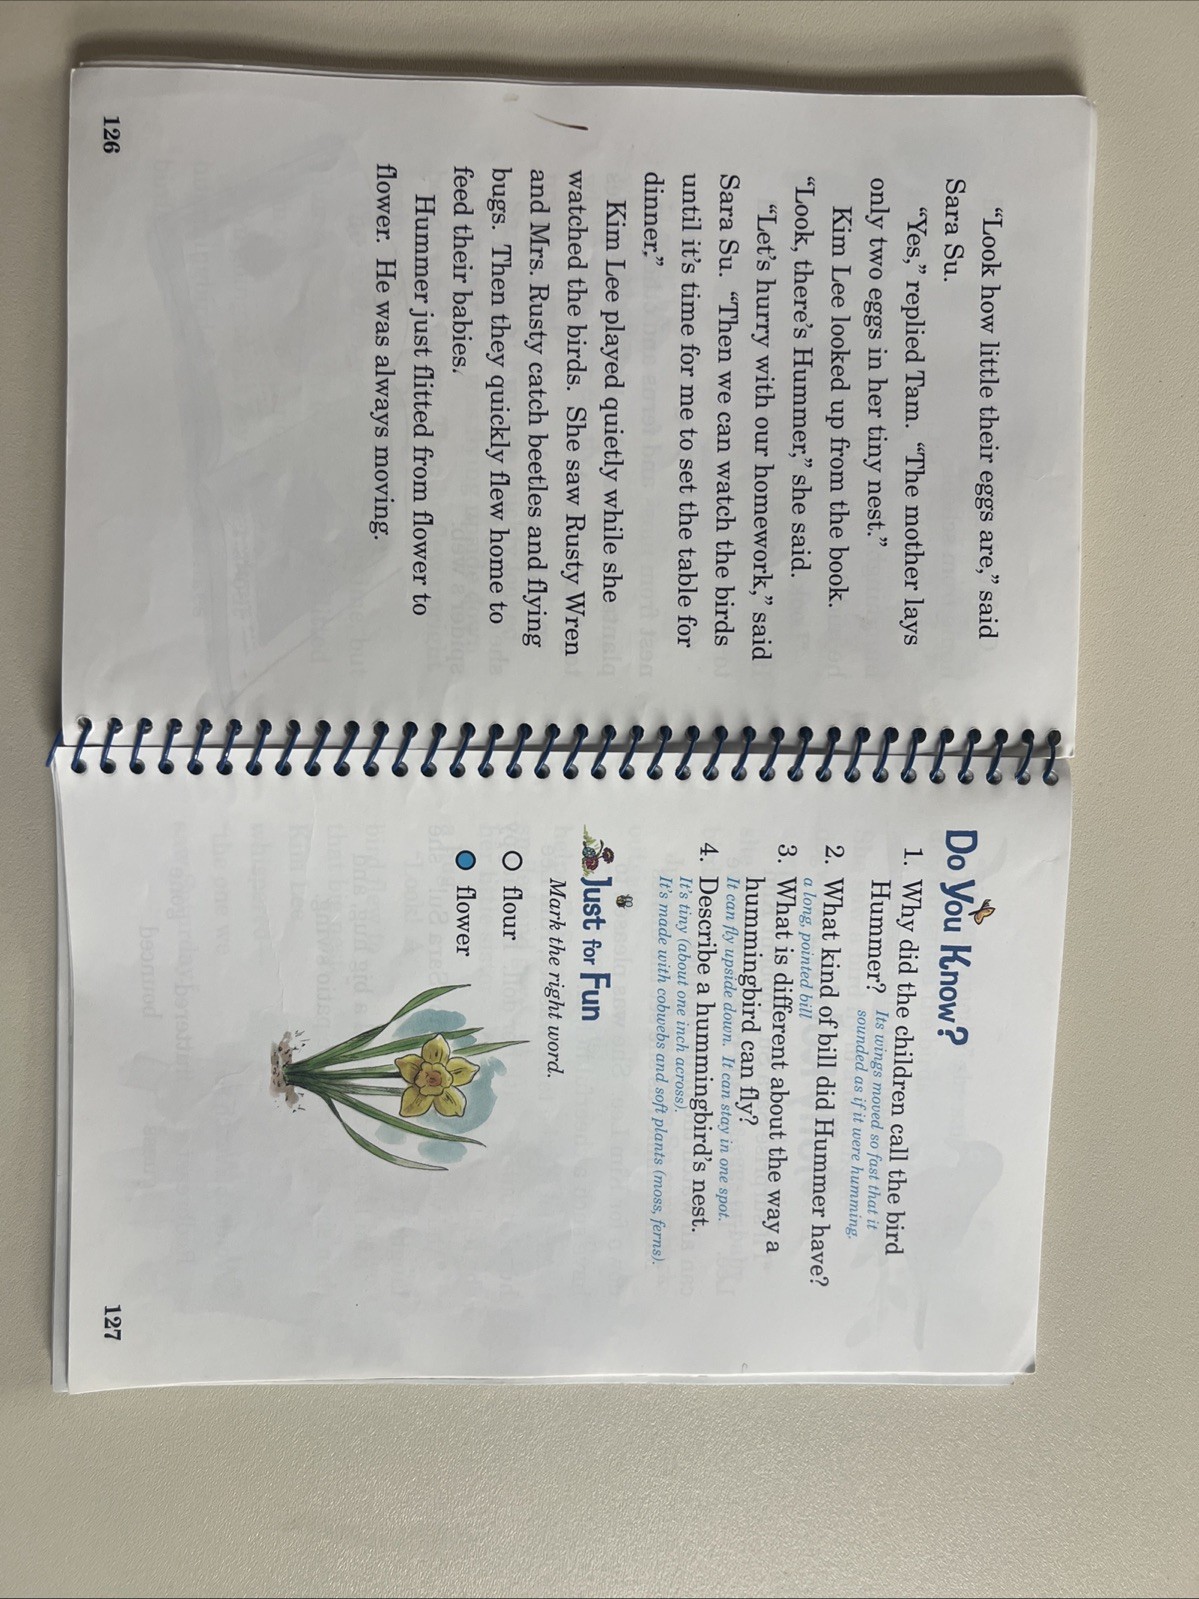 “Look how little their eggs are,” said
Sara Su.
“Yes,” replied Tam. “The mother lays
only two eggs in her tiny nest.”
Kim Lee looked up from the book.
“Look, there’s Hummer,” she said.
“Let’s hurry with our homework,” said
Sara Su. “Then we can watch the birds
until it’s time for me to set the table for
dinner.”
Kim Lee played quietly while she
watched the birds. She saw Rusty Wren
and Mrs. Rusty catch beetles and flying
bugs. Then they quickly flew home to
feed their babies.
Hummer just flitted from flower to
flower. He was always moving.
126
Do You Know?
1. Why did the children call the bird
Hummer? Its wings moved so fast that it
sounded as if it were humming.
2. What kind of bill did Hummer have?
a long, pointed bill
3. What is different about the way a
hummingbird can fly?
It can fly upside down. It can stay in one spot.
4. Describe a hummingbird’s nest.
It’s tiny (about one inch across).
It’s made with cobwebs and soft plants (moss, ferns).
Just for Fun
Mark the right word.
flour
flower
127